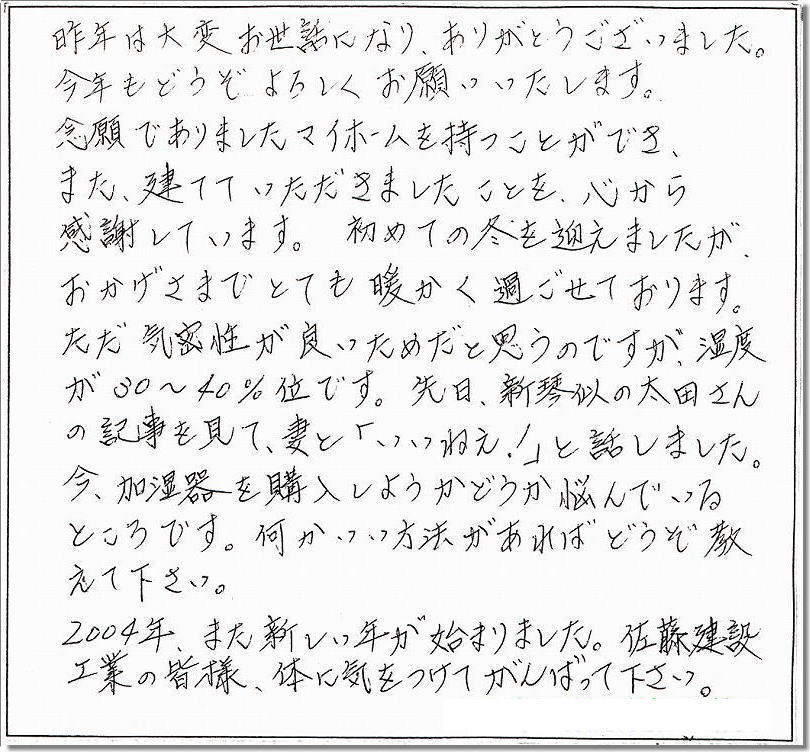 昨年は大変お世話になり、ありがとうございました。
今年もどうぞよろしくお願いいたします。
念願でありましたマイホームを持つことができ、
また、建てていただきましたことを、心から
感謝しています。 初めての冬を迎えましたが、
おかげさまでとても暖かく過ごせております。
ただ気密性が良いためだと思うのですが、湿度
が30～40％位です。先日、新琴似の太田さん
の記事を見て、妻と「いいねえ！」と話しました。
今、加湿器を購入しようかどうか悩んでいる
ところです。何かいい方法があればどうぞ教
えて下さい。
2004年、また新しい年が始まりました。佐藤建設
工業の皆様、体に気をつけてがんばって下さい。